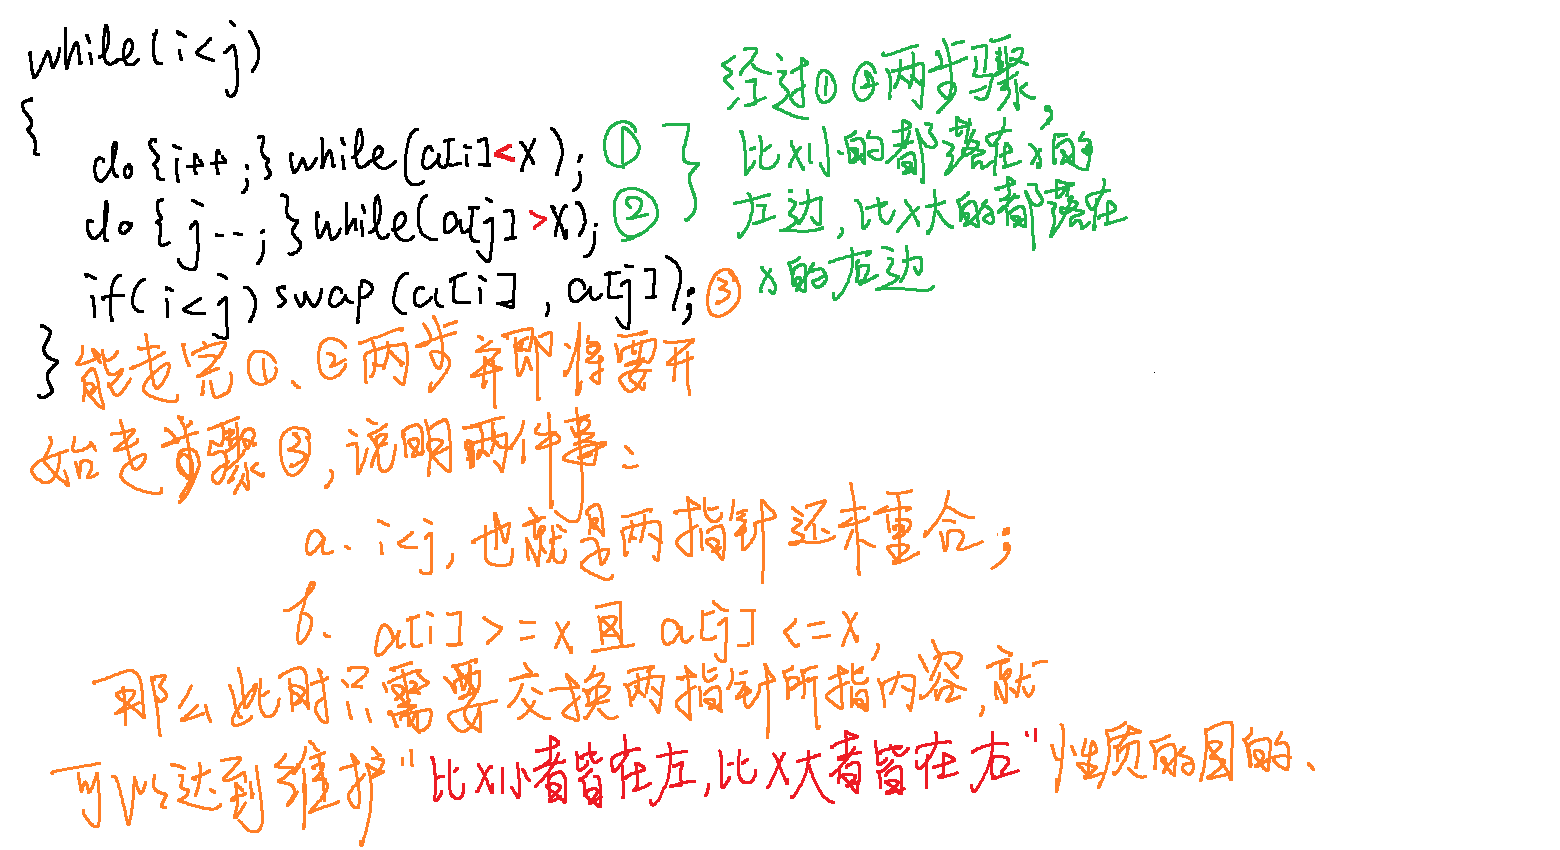 while(i<j)
{
do{i++;}while(a[i]<x); ①
do{j--;}while(a[j]>x); ②
if(i<j)swap(a[i],a[j]); ③
}
经过①②两步骤,
比x小的都落在x的
左边,比x大的都落在
x的右边
能走完①、②两步并即将要开
始走步骤③,说明两件事:
a. i<j,也就是两指针还未重合;
b. a[i]>=x且a[j]<=x,
那么此时只需要交换两指针所指内容,就
可以达到维护"比x小者皆在左,比x大者皆在右"性质的目的、